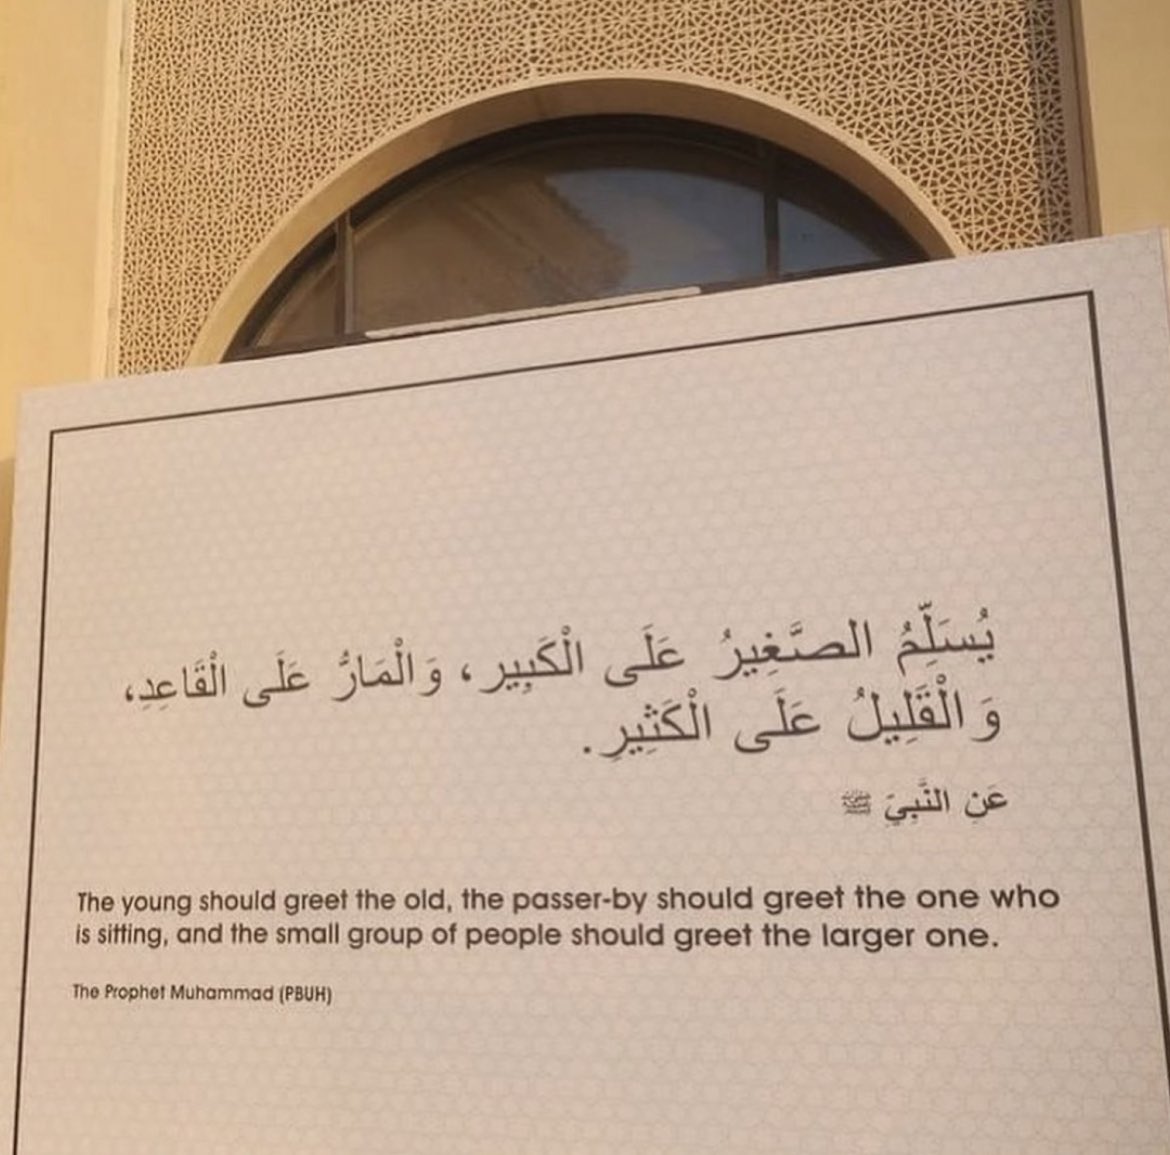 يُسَلِّمُ الصَّغِيرُ عَلَى الْكَبِيرِ، وَالْمَارُّ عَلَى الْقَاعِدِ،
وَالْقَلِيلُ عَلَى الْكَثِيرِ.
عَنِ النَّبِيِّ ﷺ
The young should greet the old, the passer-by should greet the one who
is sitting, and the small group of people should greet the larger one.
The Prophet Muhammad (PBUH)